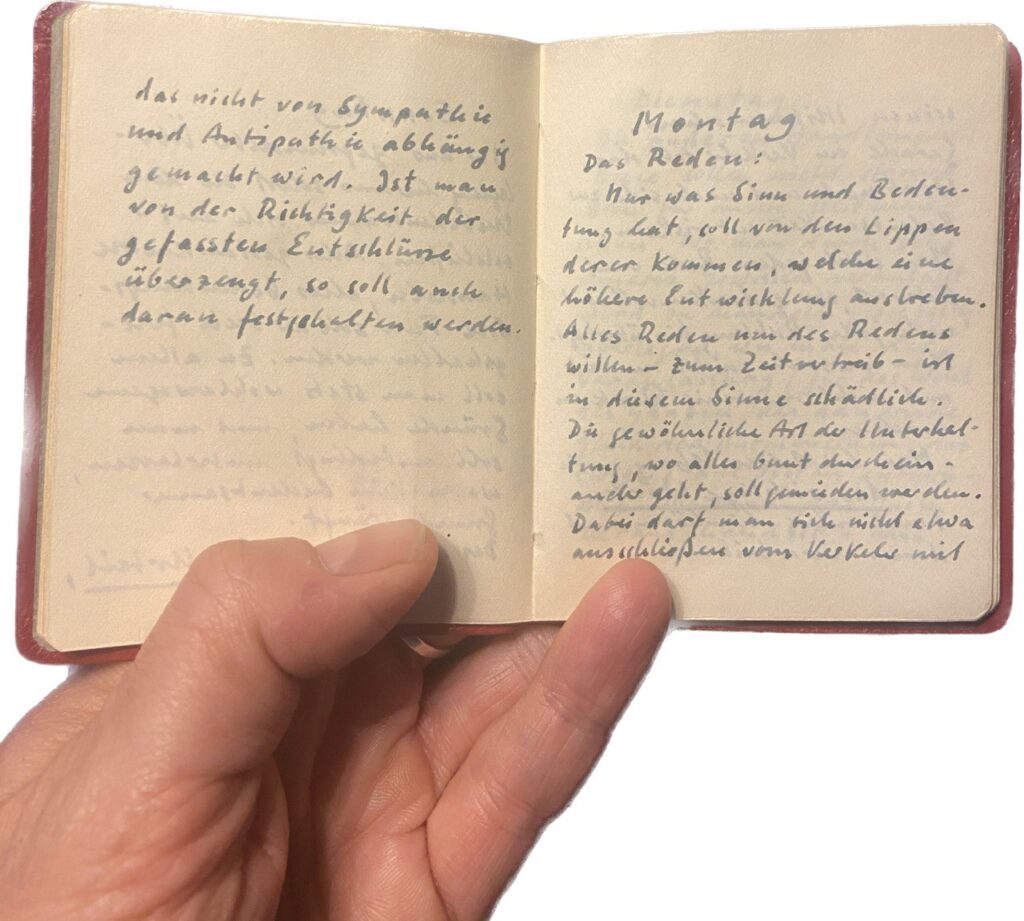 das nicht von Sympathie
und Antipathie abhängig
gemacht wird. Ist man
von der Richtigkeit der
gefassten Entschlüsse
überzeugt, so soll auch
daran festgehalten werden.
Montag
Das Reden:
Nur was Sinn und Bedeu-
tung hat, soll von den Lippen
derer kommen, welche eine
höhere Entwicklung anstreben.
Alles Reden um des Redens
willen – zum Zeitvertreib – ist
in diesem Sinne schädlich.
Die gewöhnliche Art der Unterhal-
tung, wo alles bunt durchein-
ander geht, soll gemieden werden.
Dabei darf man sich nicht etwa
ausschließen vom Verkehr mit